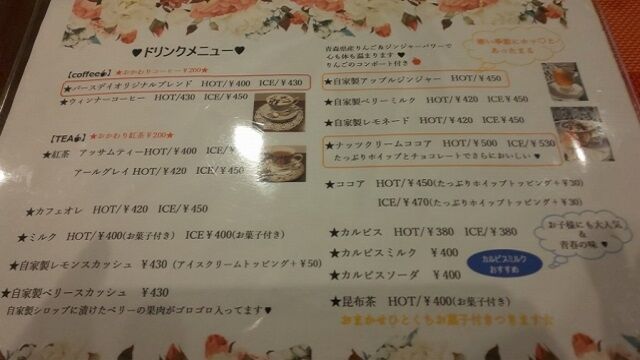 ♥ドリンクメニュー♥
【coffee】★おかわりコーヒー¥200★
★バースデイオリジナルブレンド HOT/¥400 ICE/¥430
★ウィンナーコーヒー HOT/¥430 ICE/¥450
【TEA】★おかわり紅茶¥200★
★紅茶 アッサムティーHOT/¥400 ICE/¥
アールグレイ HOT/¥420 ICE/¥450
★カフェオレ HOT/¥420 ICE/¥450
★ミルク HOT/¥400(お菓子付き) ICE¥400(お菓子付き)
★自家製レモンスカッシュ ¥430(アイスクリームトッピング+¥50)
★自家製ベリースカッシュ ¥430
自家製シロップに漬けたベリーの果肉がゴロゴロ入ってます♥
青森県産りんご&ジンジャーパワーで
心も体も温まります♥
りんごのコンポート付き
寒い季節にホッ♡と
あったまる
★自家製アップルジンジャー HOT/¥450
★自家製ベリーミルク HOT/¥420 ICE/¥450
★自家製レモネード HOT/¥420 ICE/¥450
★ナッツクリームココア HOT/¥500 ICE/¥530
たっぷりホイップとチョコレートでさらにおいしい♥
★ココア HOT/¥450(たっぷりホイップトッピング+¥30)
ICE/¥470(たっぷりホイップトッピング+¥30)
お子様にも大人気
&
青春の味♥
★カルピス HOT/¥380 ICE/¥380
★カルピスミルク ¥400
★カルピスソーダ ¥400
カルピスミルク
おすすめ
★昆布茶 HOT/¥400(お菓子付き)
おまかせひとくちお菓子付きつきます☆